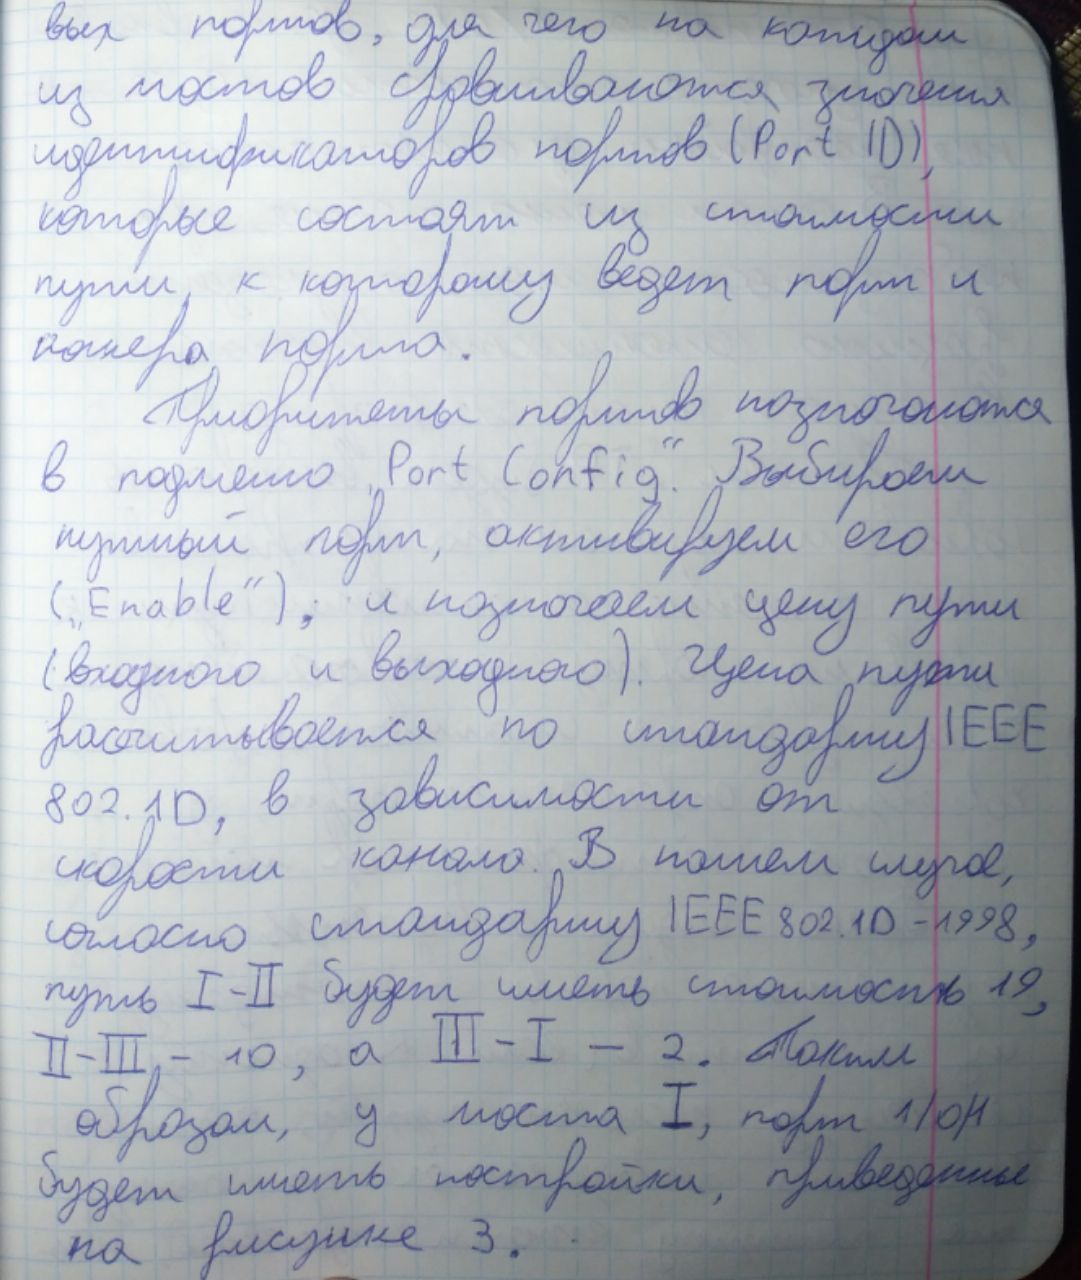 вых портов, для чего на каждом
из мостов сравниваются значения
идентификаторов портов (Port ID),
которые состоят из стоимости
пути, к которому ведет порт и
номера порта.
Приоритеты портов назначаются
в подменю „Port Config“. Выбираем
нужный порт, активируем его
(„Enable“), и назначаем цену пути
(входного и выходного). Цена пути
расчитывается по стандарту IEEE
802.1D, в зависимости от
скорости канала. В нашем случае,
согласно стандарту IEEE 802.1D-1998,
путь I-II будет иметь стоимость 19,
II-III - 10, а III-I — 2. Таким
образом, у моста I, порт
будет иметь настройки, приведенные
на рисунке 3.